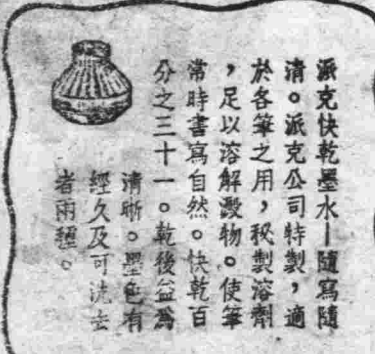 派克快乾墨水—隨寫隨
清。派克公司特製，適
於各筆之用，秘製溶劑
，足以溶解澱物。使筆
常時書寫自然。快乾百
分之三十一。乾後益為
清晰。墨色有
經久及可洗去
者兩種。